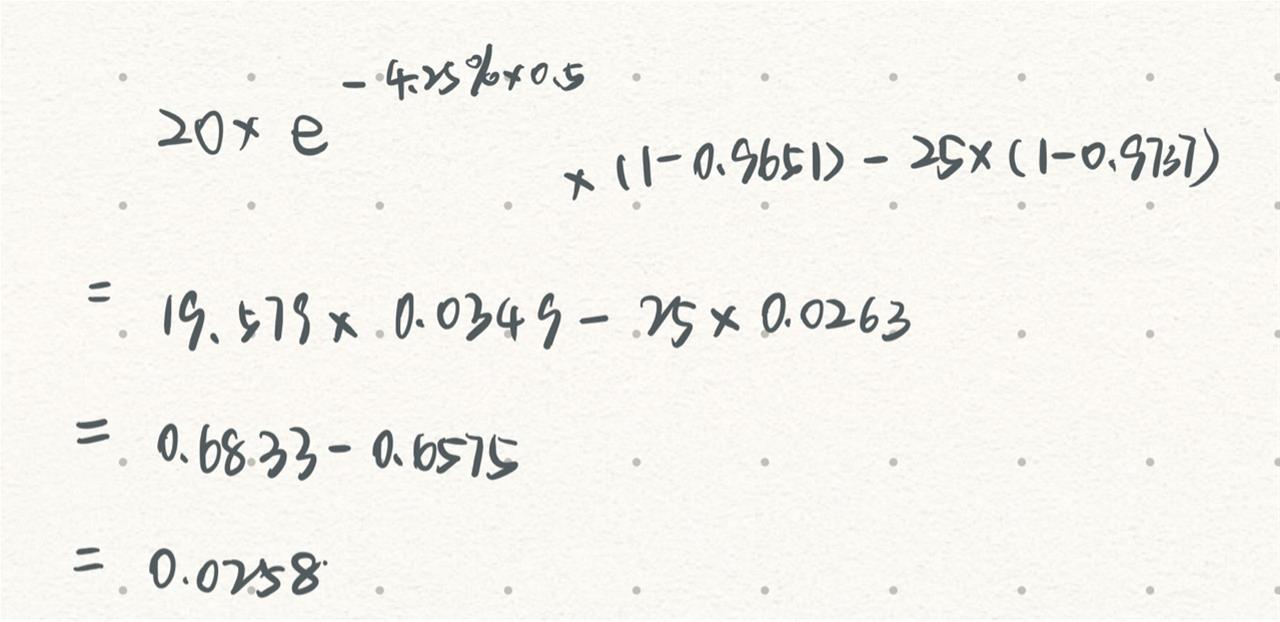 20 × e^{-4.25% × 0.5} × (1-0.9651) - 25 × (1-0.9737)
= 19.579 × 0.0349 - 25 × 0.0263
= 0.6833 - 0.6575
= 0.0258